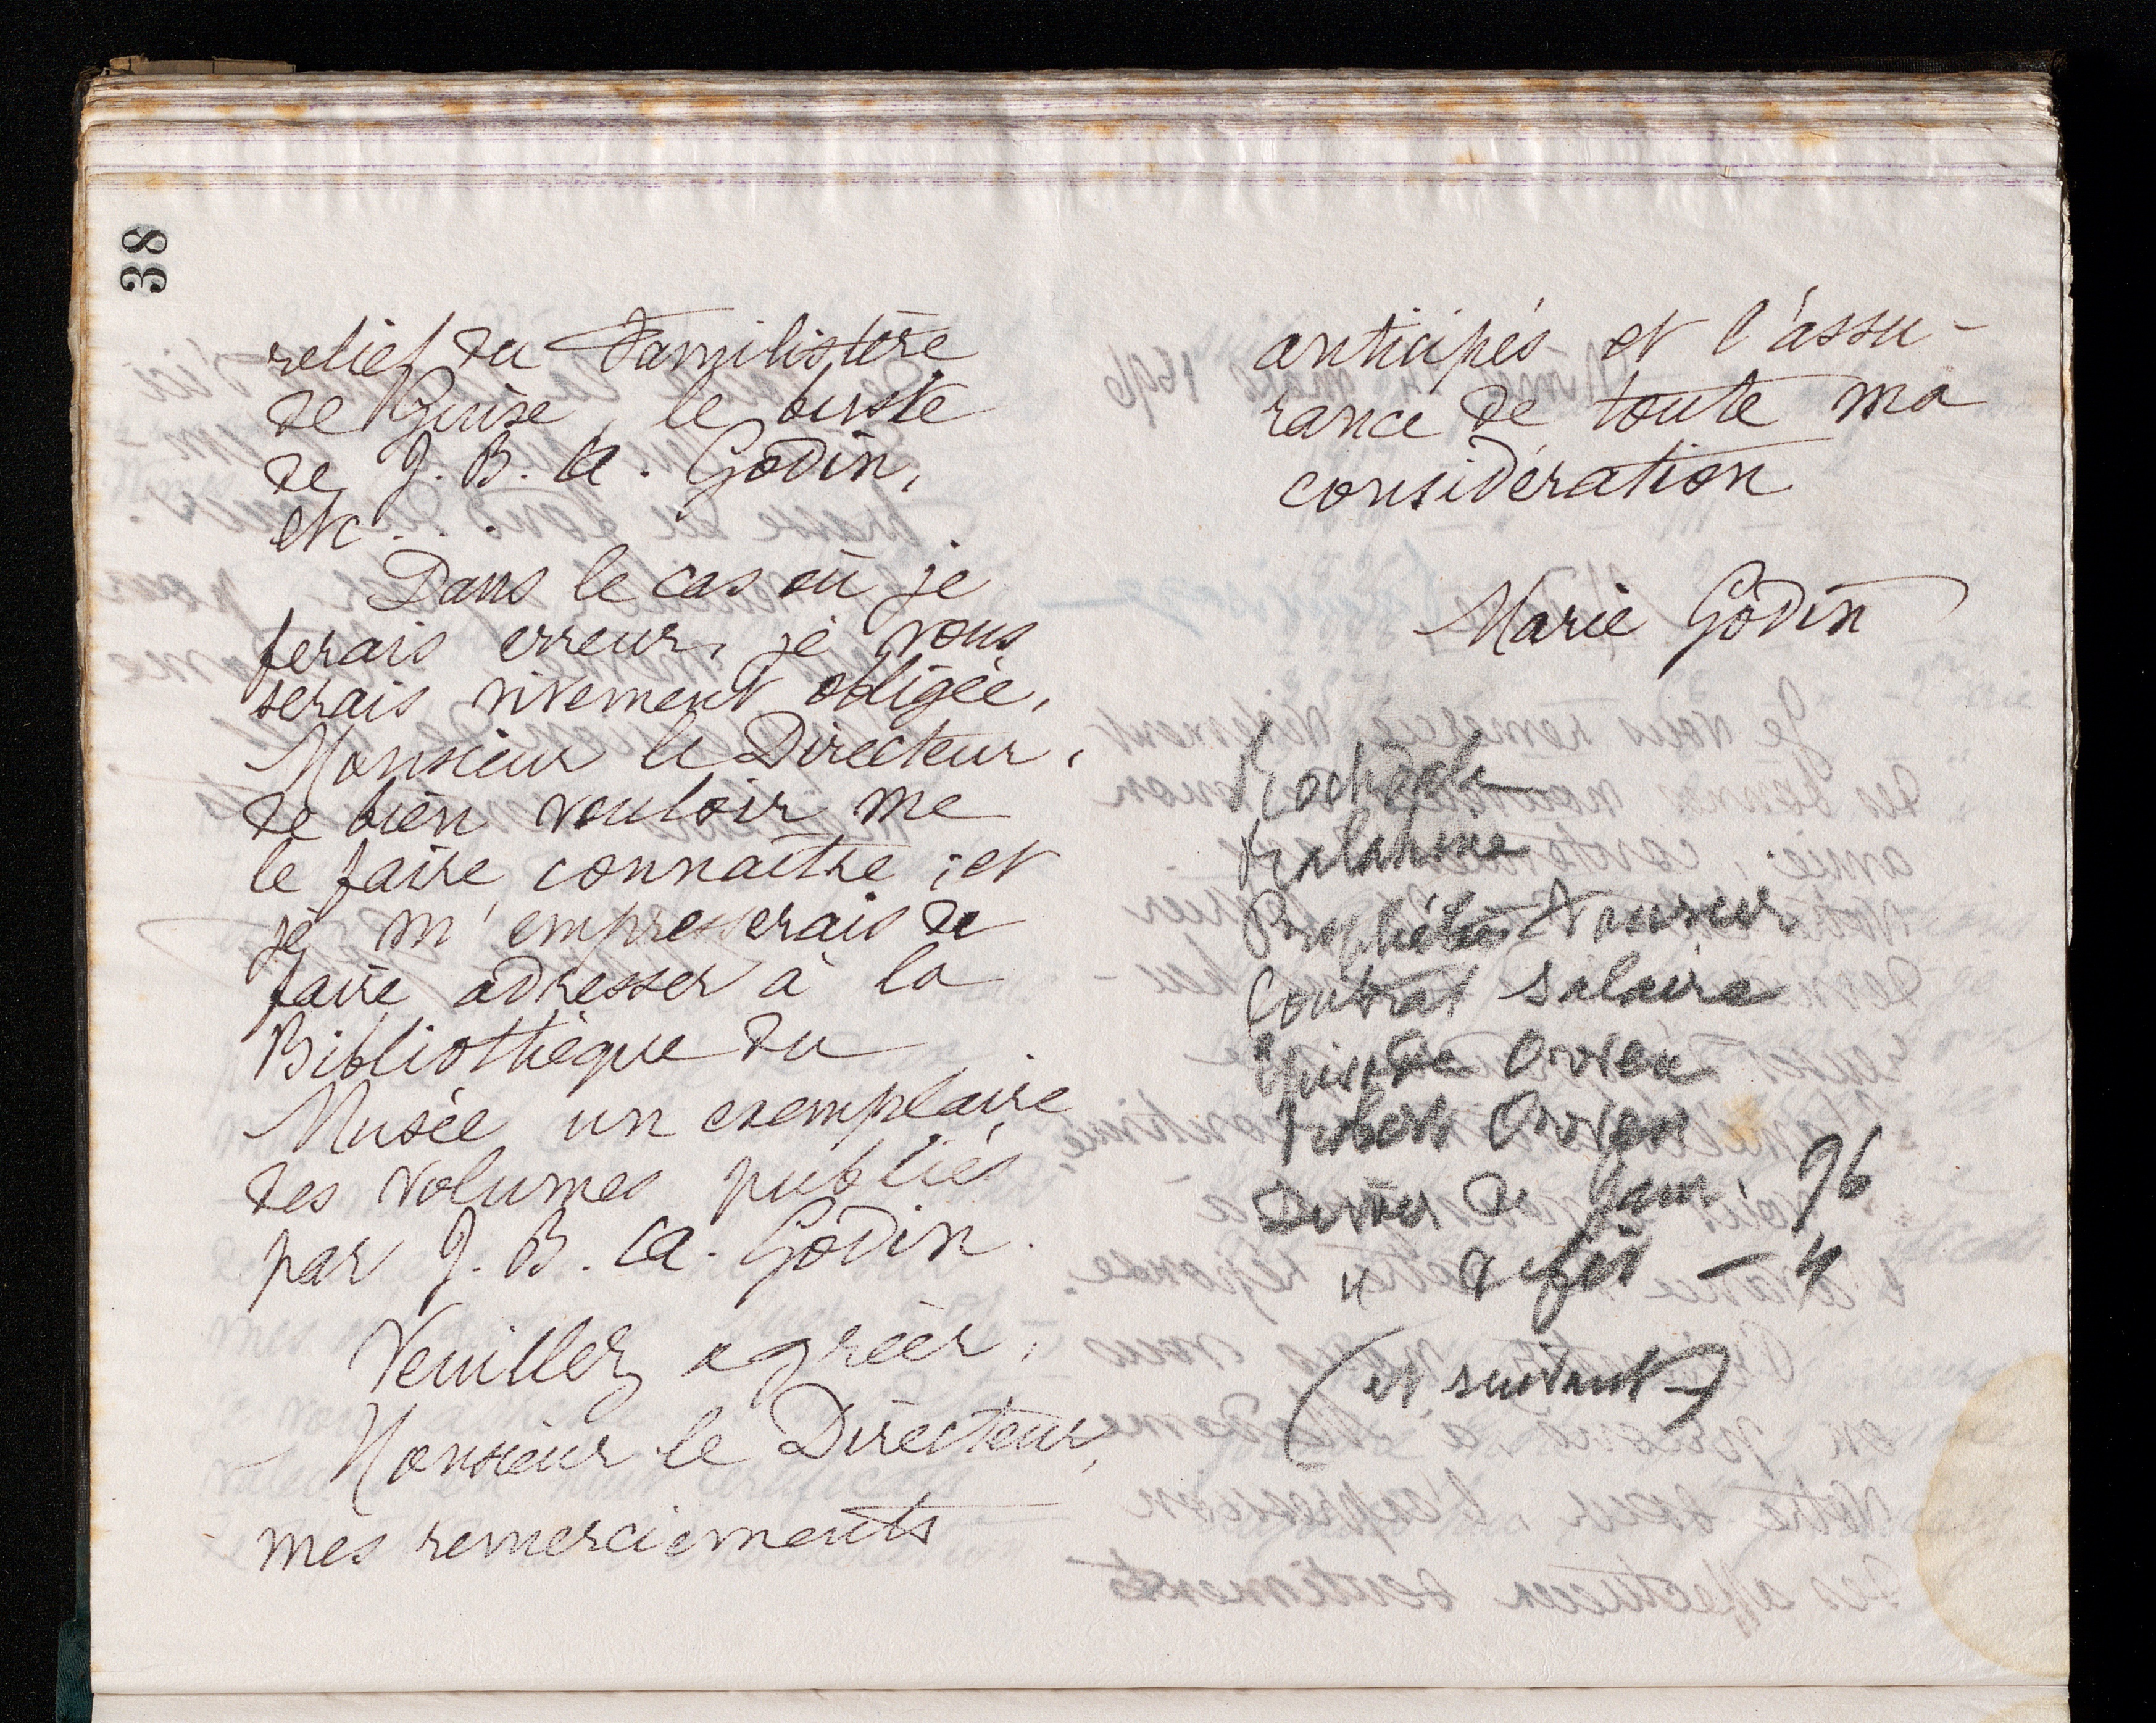 38
relief du Familistère
de Guise, le buste
de J. B. A. Godin,
etc...
Dans le cas où je
ferais erreur, je vous
serais vivement obligée,
Monsieur le Directeur,
de bien vouloir me
le faire connaître ; et
je m'empresserais de
faire adresser à la
Bibliothèque du
Musée, un exemplaire
des volumes publiés
par J. B. A. Godin.
Veuillez agréer,
Monsieur le Directeur,
mes remerciements
anticipés et l'assu-
rance de toute ma
considération
Marie Godin
Rochdale
Ralahine
Neuvième
Contrat Salaire
Owen
Robert Owen
Devoir de Janv. 96
" de fév — "
(et suivant)